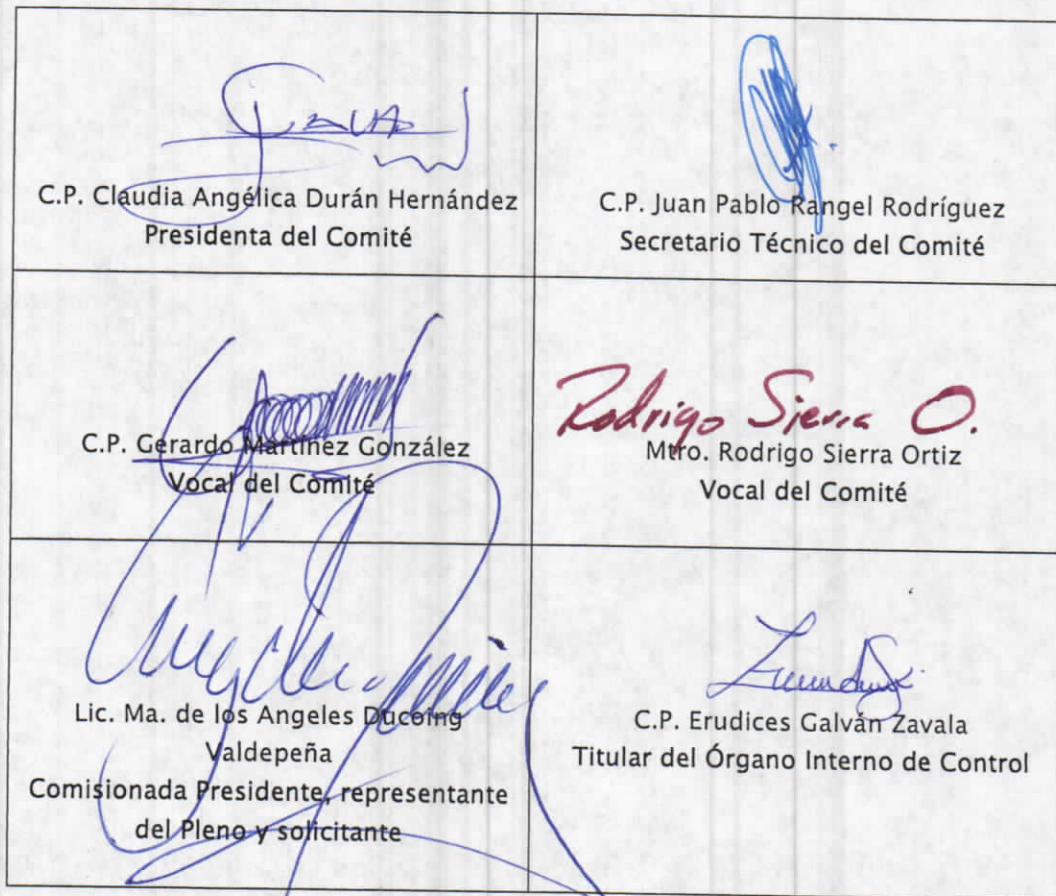 C.P. Claudia Angélica Durán Hernández
Presidenta del Comité
C.P. Juan Pablo Rangel Rodríguez
Secretario Técnico del Comité
C.P. Gerardo Martínez González
Vocal del Comité
Rodrigo Sierra O.
Mtro. Rodrigo Sierra Ortiz
Vocal del Comité
Lic. Ma. de los Angeles Ducoing
Valdepeña
Comisionada Presidente, representante
del Pleno y solicitante
C.P. Erudices Galván Zavala
Titular del Órgano Interno de Control